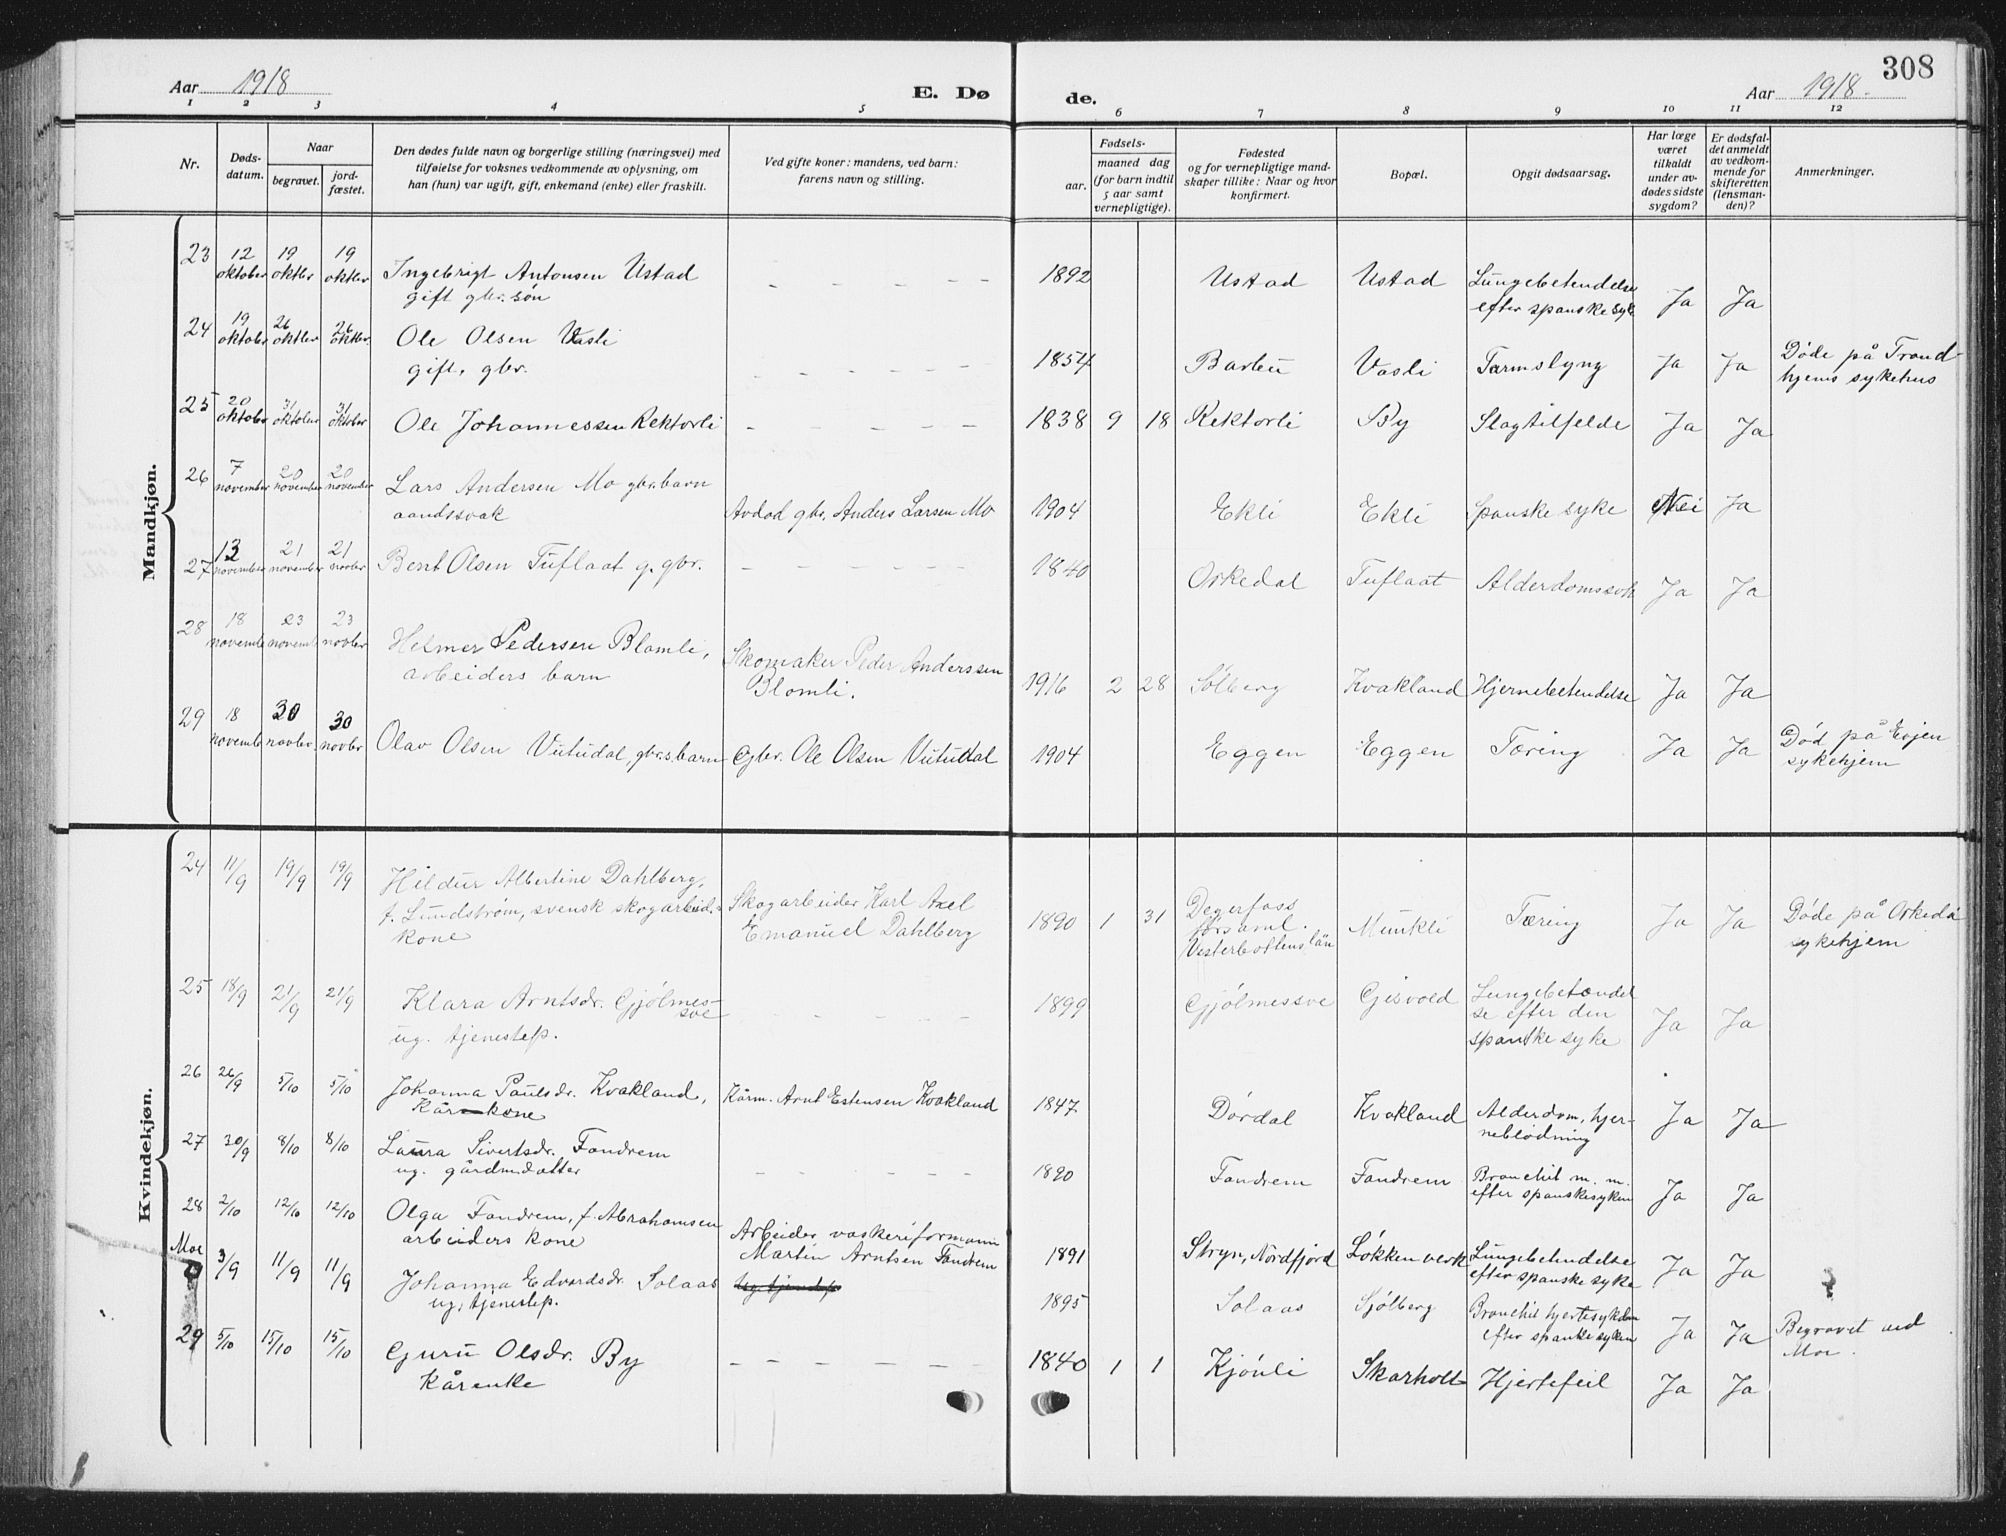 308
Aar 1918
E. Dø
de.
Aar 1918.
1 2 3 4 5 6 7 8 9 10 11 12
Nr.
Døds-
datum.
Naar
begravet.
jord-
fæstet.
Den dødes fulde navn og borgerlige stilling (næringsvei) med
tilføielse for voksnes vedkommende av oplysning, om
han (hun) var ugift, gift, enkemand (enke) eller fraskilt.
Ved gifte koner: mandens, ved barn:
farens navn og stilling.
Fødsels-
aar.
maaned dag
(for barn indtil
5 aar samt
vernepligtige).
Fødested
og for vernepligtige mand-
skaper tillike: Naar og hvor
konfirmert.
Bopæl.
Opgit dødsaarsag.
Har læge
været
tilkaldt
under av-
dødes sidste
sygdom?
Er dødsfal-
det anmeldt
av vedkom-
mende for
skifteretten
(lensman-
den)?
Anmerkninger.
Mandkjøn.
23 12 oktober 19 oktbr 19 oktbr Ingebrigt Antonsen Ustad
gift gbr. søn
– – – – – 1892 Ustad Ustad Lungebetendelse
efter spanske syk. Ja Ja
24 19 oktober 26 oktbr 26 oktbr. Ole Olsen Vasli
gift, gbr.
– – – – – 1854 Barbu Vasli Tarmslyng Ja Ja Døde på Trond-
hjems sykehus
25 20 oktober 31 oktober 31 oktober Ole Johannessen Rektorli – – – – – 1838 9 18 Rektorli By Slagtilfelde Ja Ja
26 7 november 20 november 20 november Lars Andersen Mo gbr.barn
aandssvak
Avdød gbr. Anders Larsen Mo 1904 Ekli Ekli Spanske syke Nei Ja
27 13 november 21 november 21 novbr Bent Olsen Tuflaat g. gbr. – – – – – – 1840 Orkedal Tuflaat Alderdomssvk Ja Ja
28 18 novembe 23 novemb 23 novbr Helmer Pedersen Blomli,
arbeiders barn
Skomaker Peder Anderssen
Blomli.
1916 2 28 Sølberg Kvakland Hjernebetendelse Ja Ja
29 18 novembe 30 novbr. 30 novbr Olav Olsen Vutudal, gbr.s.barn Gbr. Ole Olsen Vutudal 1904 Eggen Eggen Tæring Ja Ja Død på Evjen
sykehjem
Kvindekjøn.
24 11/9 19/9 19/9 Hildur Albertine Dahlberg,
f. Lundstrøm, svensk skogarbeid.s
kone
Skogarbeider Karl Axel
Emanuel Dahlberg
1890 1 31 Degerfoss
församl.
Vesterbottens län
Munkli Tæring Ja Ja Døde på Orkedal
sykehjem
25 18/9 21/9 21/9 Klara Arntsdr. Gjølmes-
sve
ug. tjenestep.
– – – – – 1899 Gjølmessve Gisvold Lungebetændel
se efter den
spanske syke Ja Ja
26 26/9 5/10 5/10 Johanna Paulsdr. Kvakland,
Kårkone
Kårm. Arnt Estensen Kvakland 1847 Dørdal Kvakland Alderdom, hjer-
neblødning Ja Ja
27 30/9 8/10 8/10 Laura Sivertsdr. Fandrem
ug. gårdmdatter
– – – – – 1890 Fandrem Fandrem Bronchit m. m.
efter spanskesyken Ja Ja
28 2/10 12/10 12/10 Olga Fandrem, f. Abrahamsen
arbeiders kone
Arbeider, vaskeriformann
Martin Arntsen Fandrem
1891 Stryn, Nordfjord Løkken verk Lungebetendelse
efter spanske syke Ja Ja
Moe 3/9 11/9 11/9 Johanna Edvardsdr. Solaas
ug. tjenestep.
ug. tjenestep
1895 Solaas Sjølberg Bronchit hjertesykdom
efter spanske syken Ja Ja Begravet ved
Moe.
29 5/10 15/10 15/10 Guru Olsdr. By
Kårenke
– – – – – – 1840 1 1 Kjønli Skarholt Hjertefeil Ja Ja